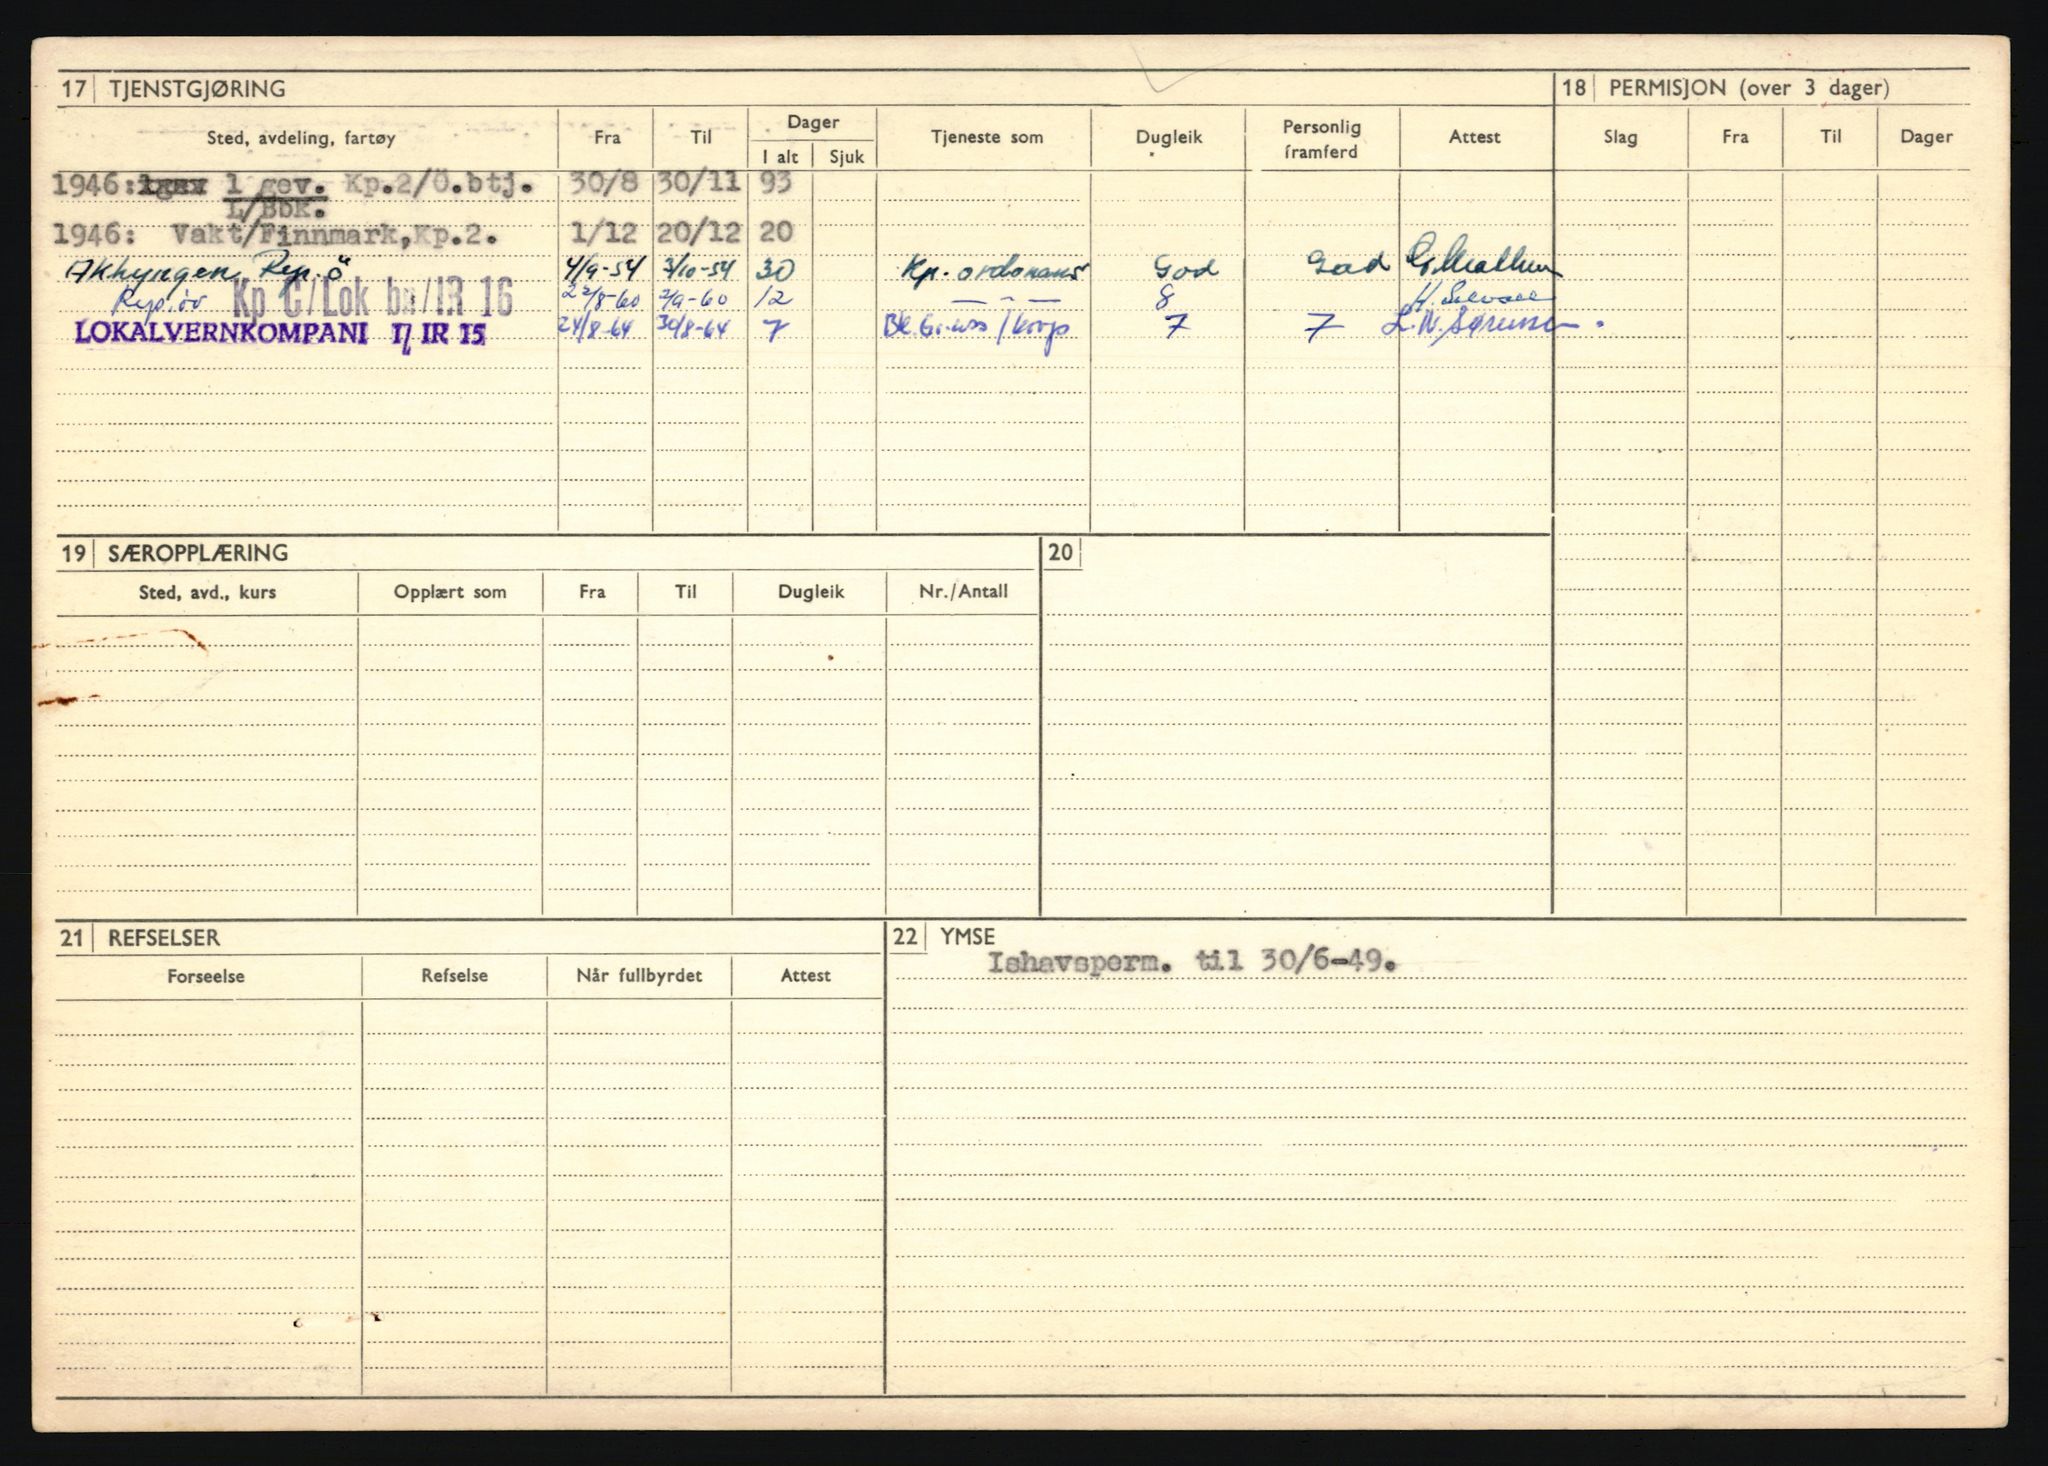 17 TJENSTGJØRING 18 PERMISJON (over 3 dager)
Sted, avdeling, fartøy Fra Til Dager Tjeneste som Dugleik Personlig framferd Attest Slag Fra Til Dager
I alt Sjuk
1946: 1 gev. Kp.2/Ö.btj. 30/8 30/11 93
L/Bbk.
1946: Vakt/Finnmark,Kp.2. 1/12 20/12 20
Rep.ö 4/9-54 3/10-54 30 Kp. ordonans God God
Rep.öv Kp C/Lok bn/IR 16 22/8-60 2/9-60 12 — " — 8
LOKALVERNKOMPANI 17 IR 15 24/8-64 30/8-64 7 7 7
19 SÆROPPLÆRING 20
Sted, avd., kurs Opplært som Fra Til Dugleik Nr./Antall
21 REFSELSER 22 YMSE
Ishavsperm. til 30/6-49.
Forseelse Refselse Når fullbyrdet Attest